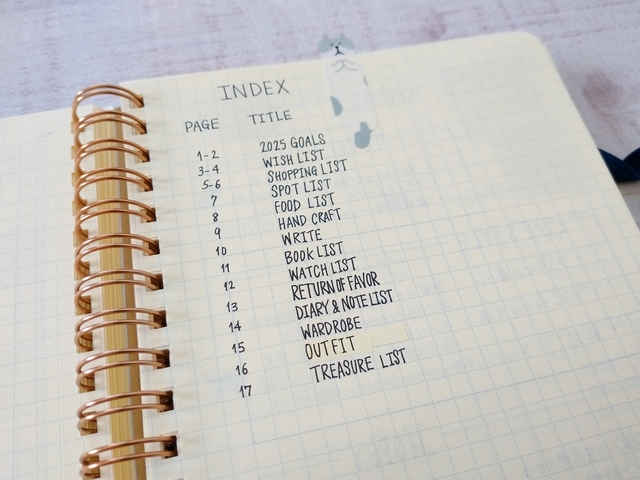 INDEX
PAGE TITLE
1-2 2025 GOALS
3-4 WISH LIST
5-6 SHOPPING LIST
7 SPOT LIST
8 FOOD LIST
9 HAND CRAFT
10 WRITE
11 BOOK LIST
12 WATCH LIST
13 RETURN OF FAVOR
14 DIARY & NOTE LIST
15 WARDROBE
16 OUTFIT
17 TREASURE LIST